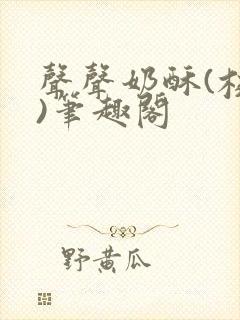 聲聲奶酥(校
)筆趣閣
野黃瓜